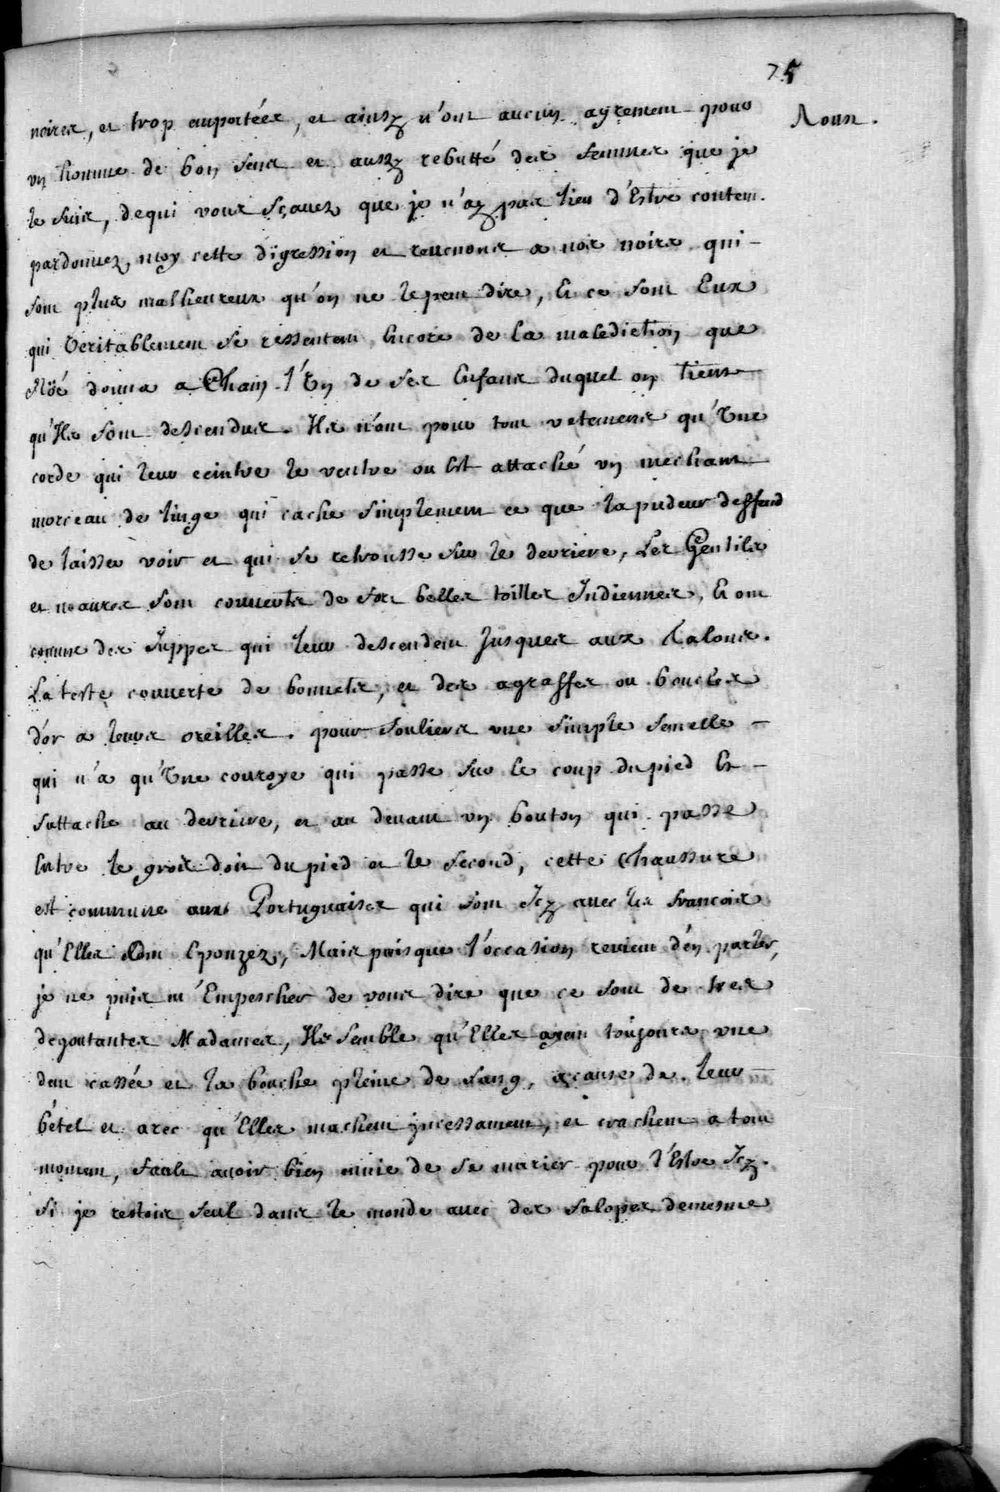 75
Aoust.
noires, et trop emportées, et ainsy n'ont aucun agrement pour
un homme de bon sens et aussy rebutté des femmes que je
le suis, de qui vous sçavez que je n'ay pas lieu d'Estre content.
pardonnez moy cette digression et revenons a nos noirs qui
sont plus malheureux qu'on ne le peut dire, Et ce sont Eux
qui Veritablement se ressentent Encore de la malediction que
Noé donna a Cham l'Un de ses Enfans duquel on tient
qu'Ils sont descendus. Ils n'ont pour tout vetemens qu'Une
corde qui leur ceintre le ventre ou Est attaché un mechant
morceau de linge qui cache simplement ce que la pudeur deffend
de laisser voir et qui se retrousse sur le derriere, Les Gentils
et maures sont couverts de fort belles toilles Indiennes, Et ont
comme des Juppes qui leur descendent Jusques aux Talons.
La teste couverte de bonnets, et des agraffes ou boucles
d'or a leurs oreilles. pour souliers une simple semelle
qui n'a qu'Une couroye qui passe sur le coup du pied Et
s'attache au derriere, et au devant un bouton qui passe
Entre le gros doit du pied et le second, cette Chaussure
est commune aux Portuguaises qui sont Icy avec les francois
qu'Elles ont Epouzez, Mais puis que l'occasion revient d'en parler,
je ne puis m'Empescher de vous dire que ce sont de tres
degoutantes Madames, Il semble qu'Elles ayent toujours une
dent cassée et la bouche pleine de sang, a cause de leur
bétel et arec qu'Elles machent incessament, et crachent a tout
moment, faut avoir bien envie de se marier pour l'Estre Icy.
Si je restois seul dans le monde avec des salopes de mesme